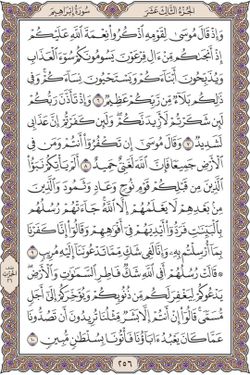 الجزء الثالث عشر سورة إبراهيم
وَإِذْ قَالَ مُوسَىٰ لِقَوْمِهِ اذْكُرُوا نِعْمَةَ اللَّهِ عَلَيْكُمْ
إِذْ أَنجَاكُم مِّنْ آلِ فِرْعَوْنَ يَسُومُونَكُمْ سُوءَ الْعَذَابِ
وَيُذَبِّحُونَ أَبْنَاءَكُمْ وَيَسْتَحْيُونَ نِسَاءَكُمْ وَفِي
ذَٰلِكُم بَلَاءٌ مِّن رَّبِّكُمْ عَظِيمٌ ٦ وَإِذْ تَأَذَّنَ رَبُّكُمْ
لَئِن شَكَرْتُمْ لَأَزِيدَنَّكُمْ وَلَئِن كَفَرْتُمْ إِنَّ عَذَابِي
لَشَدِيدٌ ٧ وَقَالَ مُوسَىٰ إِن تَكْفُرُوا أَنتُمْ وَمَن فِي
الْأَرْضِ جَمِيعًا فَإِنَّ اللَّهَ لَغَنِيٌّ حَمِيدٌ ٨ أَلَمْ يَأْتِكُمْ نَبَأُ
الَّذِينَ مِن قَبْلِكُمْ قَوْمِ نُوحٍ وَعَادٍ وَثَمُودَ وَالَّذِينَ
مِن بَعْدِهِمْ لَا يَعْلَمُهُمْ إِلَّا اللَّهُ جَاءَتْهُمْ رُسُلُهُم
بِالْبَيِّنَاتِ فَرَدُّوا أَيْدِيَهُمْ فِي أَفْوَاهِهِمْ وَقَالُوا إِنَّا كَفَرْنَا
بِمَا أُرْسِلْتُم بِهِ وَإِنَّا لَفِي شَكٍّ مِّمَّا تَدْعُونَنَا إِلَيْهِ مُرِيبٍ ٩
۞ قَالَتْ رُسُلُهُمْ أَفِي اللَّهِ شَكٌّ فَاطِرِ السَّمَاوَاتِ وَالْأَرْضِ
يَدْعُوكُمْ لِيَغْفِرَ لَكُم مِّن ذُنُوبِكُمْ وَيُؤَخِّرَكُمْ إِلَىٰ أَجَلٍ
مُّسَمًّى قَالُوا إِنْ أَنتُمْ إِلَّا بَشَرٌ مِّثْلُنَا تُرِيدُونَ أَن تَصُدُّونَا
عَمَّا كَانَ يَعْبُدُ آبَاؤُنَا فَأْتُونَا بِسُلْطَانٍ مُّبِينٍ ١٠
٢٥٦